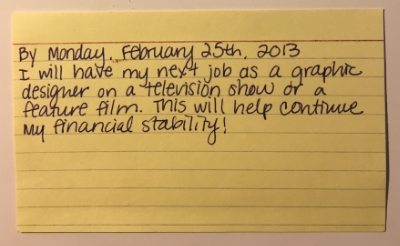 By Monday, February 25th, 2013
I will have my next job as a graphic
designer on a television show or a
feature film. This will help continue
my financial stability!